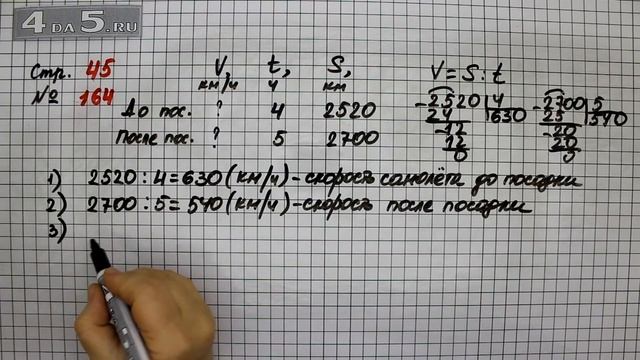 4DA5.RU
Стр. 45
№ 164
V, t, S,
км/ч ч км
До пос. ? 4 2520
После пос. ? 5 2700
V = S : t
2520 4
24 630
12
12
0
2700 5
25 540
20
20
0
1) 2520 : 4 = 630 (км/ч) - скорость самолёта до посадки
2) 2700 : 5 = 540 (км/ч) - скорость после посадки
3)